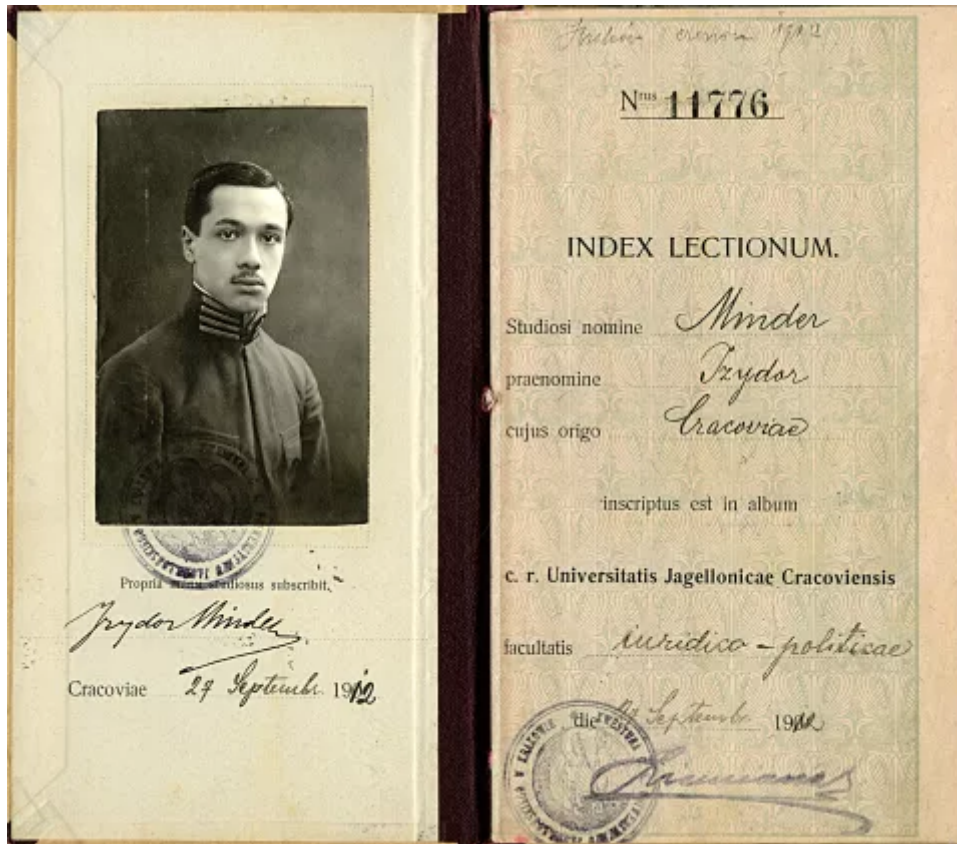 Propria manu studiosus subscribit,
Izydor Minder
Cracoviae 27 Septembr. 1912
1912
Nrus 11776
INDEX LECTIONUM.
Studiosi nomine Minder
praenomine Izydor
cujus origo Cracoviae
inscriptus est in album
c. r. Universitatis Jagellonicae Cracoviensis
facultatis iuridico-politicae
die Septembr. 1912
W KRAKOWIE KWESTURA